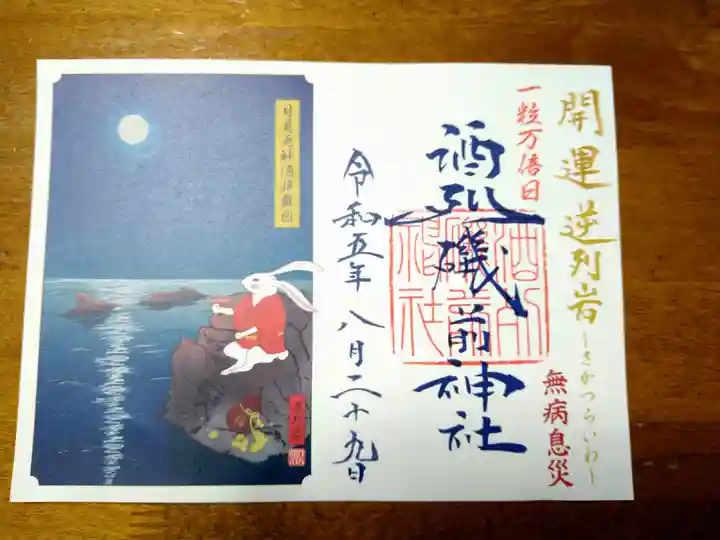 開運 逆列岩
―さかつらいわ―
無病息災
一粒万倍日
酒列磯前神社
令和五年 八月二十九日